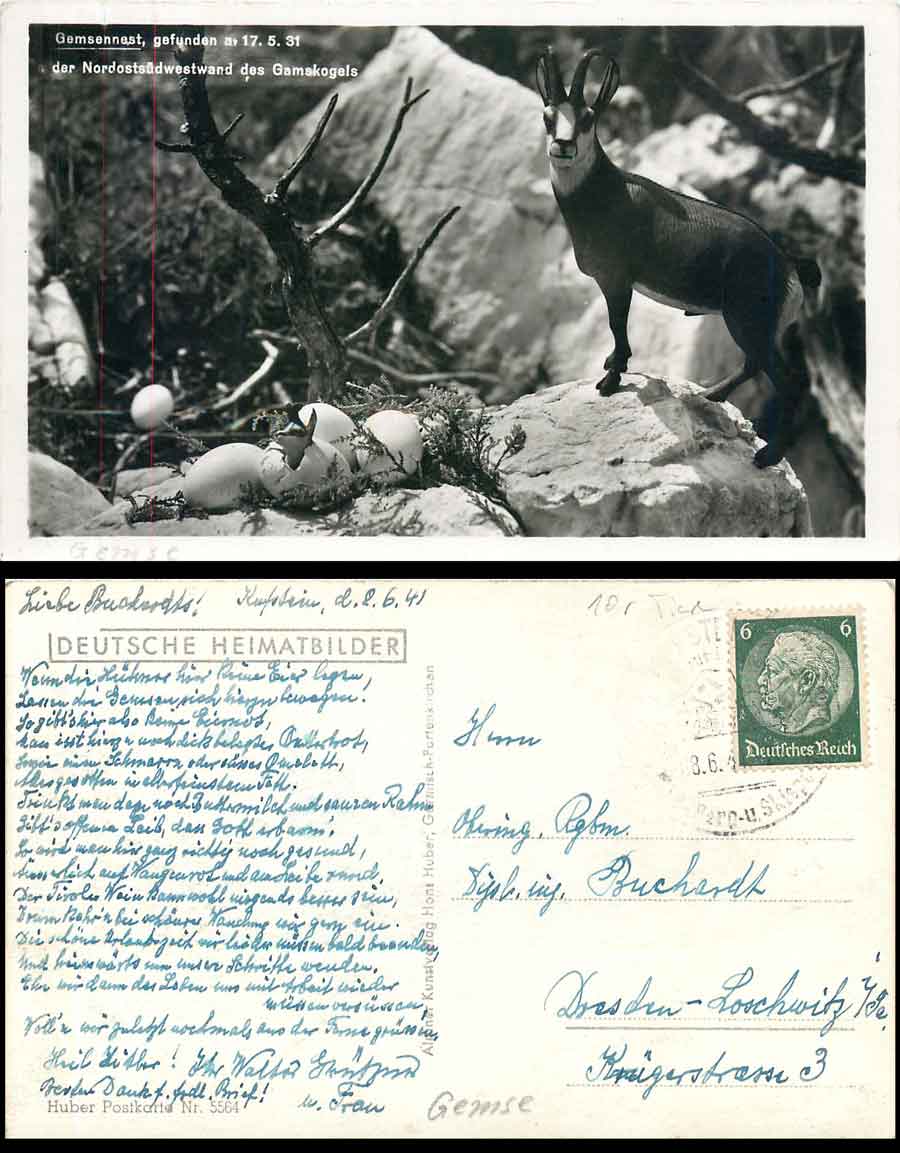 Gemsennest, gefunden a. 17. 5. 31
der Nordostsüdwestwand des Gamskogels
Gemse
Liebe Buchardts! Kufstein, d. 2.6.41
10r Tier
DEUTSCHE HEIMATBILDER
Wenn die Hühner hier keine Eier legen,
Lassen die Gemsen sich hierzu bewegen.
So gibt's hier also keine Eiernot,
Man isst hierzu noch dick belegtes Butterbrot,
Sowie einen Schmarrn oder süsses Omelett,
Alles gesotten in allerfeinstem Fett.
Trinkt man dazu noch Buttermilch und sauren Rahm
Gibt's offenen Leib, dass Gott erbarm'.
So wird man hier ganz richtig noch gesund,
Äusserlich auf Wangen rot und am Leibe rund,
Der Tiroler Wein kann wohl nirgends besser sein,
Drum kehr'n bei schöner Wandrung wir gern ein.
Die schöne Urlaubszeit wir leider müssen bald beenden,
Und heimwärts nun unsre Schritte wenden.
Ehe wir dann das Leben uns mit Arbeit wieder
müssen versüssen,
Woll'n wir zuletzt nochmals aus der Ferne grüssen,
Heil Hitler! Ihr Walter
u. Frau
Besten Dank f. frdl. Brief!
Huber Postkarte Nr. 5564
Alpiner Kunstverlag Hans Huber, Garmisch-Partenkirchen
6 6
Deutsches Reich
8.6.4
Berg-u.
Herrn
Obering. Rgbm.
Dipl. ing. Buchardt
Dresden-Loschwitz i/Sa.
Krügerstrasse 3
Gemse